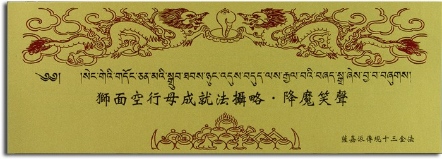 ༄༅། །སེང་གེའི་གདོང་ཅན་མའི་སྒྲུབ་ཐབས་ཉུང་འདུས་བདུད་ལས་རྒྱལ་བའི་བཞད་སྒྲ་ཞེས་བྱ་བ་བཞུགས།
獅面空行母成就法攝略·降魔笑聲
薩嘉派傳規十三金法